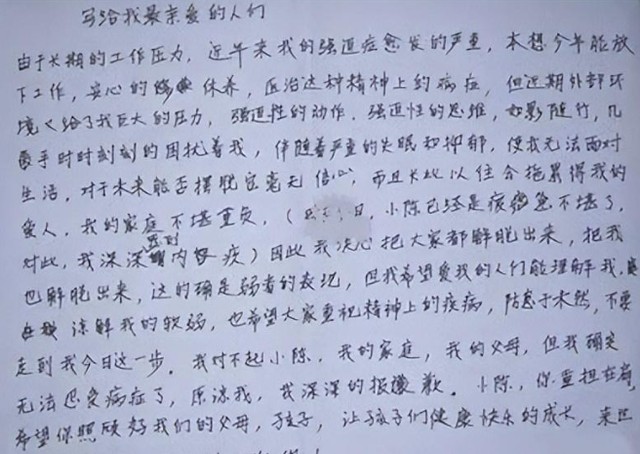 写给我最亲爱的人们
由于长期的工作压力，近年来我的强迫症愈发的严重，本想今年能放
下工作，安心的休养，医治这种精神上的病症，但近期外部环
境又给了我巨大的压力，强迫性的动作，强迫性的思维，如影随行，几
乎时时刻刻的困扰着我，伴随着严重的失眠和抑郁，使我无法面对
生活，对于未来能否摆脱它毫无信心，而且长此以往会拖累得我的
爱人，我的家庭不堪重负，（小陈已经是疲惫不堪了，
对此，我深深感到内疚）因此我决心把大家都解脱出来，把我
也解脱出来，这的确是弱者的表现，但我希望爱我的人们能理解我，
谅解我的软弱，也希望大家重视精神上的疾病，防患于未然，不要
走到我今日这一步。我对不起小陈，我的家庭，我的父母，但我确实
无法忍受病症了，原谅我，我深深的报歉。小陈，你重担在肩
希望你照顾好我们的父母，孩子，让孩子们健康快乐的成长，来世